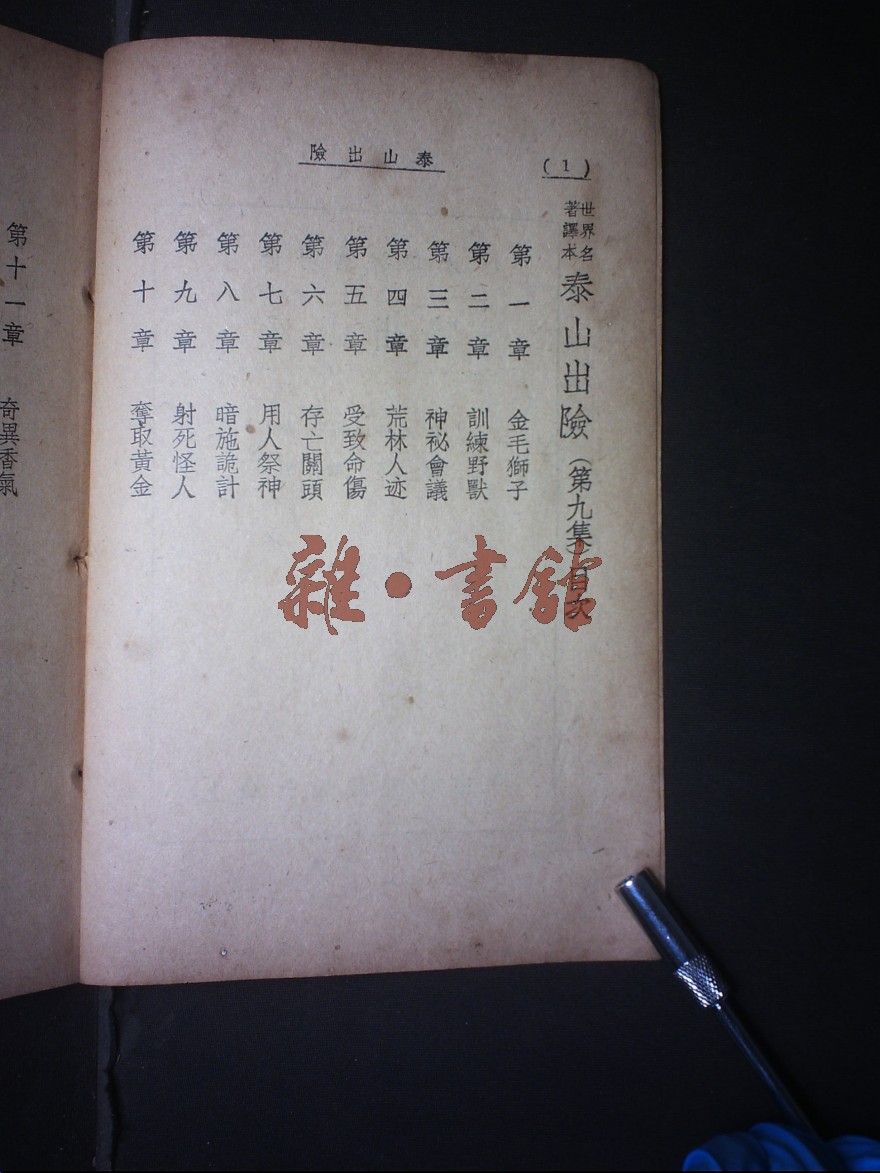 泰山出險
(1)
世界名著譯本
泰山出險(第九集)目次
第一章 金毛獅子
第二章 訓練野獸
第三章 神祕會議
第四章 荒林人迹
第五章 受致命傷
第六章 存亡關頭
第七章 用人祭神
第八章 暗施詭計
第九章 射死怪人
第十章 奪取黃金
第十一章 奇異香氣
雜·書館